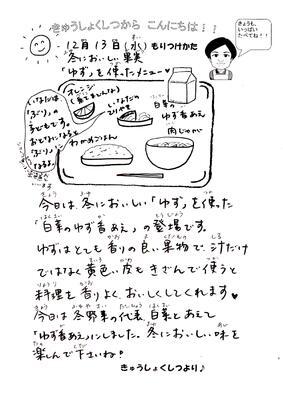 きゅうしょくしつから こんにちは…
きょうも、
いっぱい
たべてね！！
12月13日(水)もりつけかた
冬においしい果実
「ゆず」を使ったメニュー♥
オレンジ
いなだの
てりやき
白菜の
ゆず香あえ
肉じゃが
わかめごはん
いなだは
「ぶり」の
子どもです。
おとなになると
「ぶり」に
なるよ。
今日は、冬においしい「ゆず」を使った
「白菜のゆず香あえ」の登場です。
ゆずはとても香りの良い果物で、汁だけ
ではなく黄色い皮もきざんで使うと
料理を香りよく、おいしくしてくれます♥
今日は冬野菜の代表、白菜とあえて
「ゆず香あえ」にしました。冬においしい味を
楽しんで下さいね！
きゅうしょくしつより♪